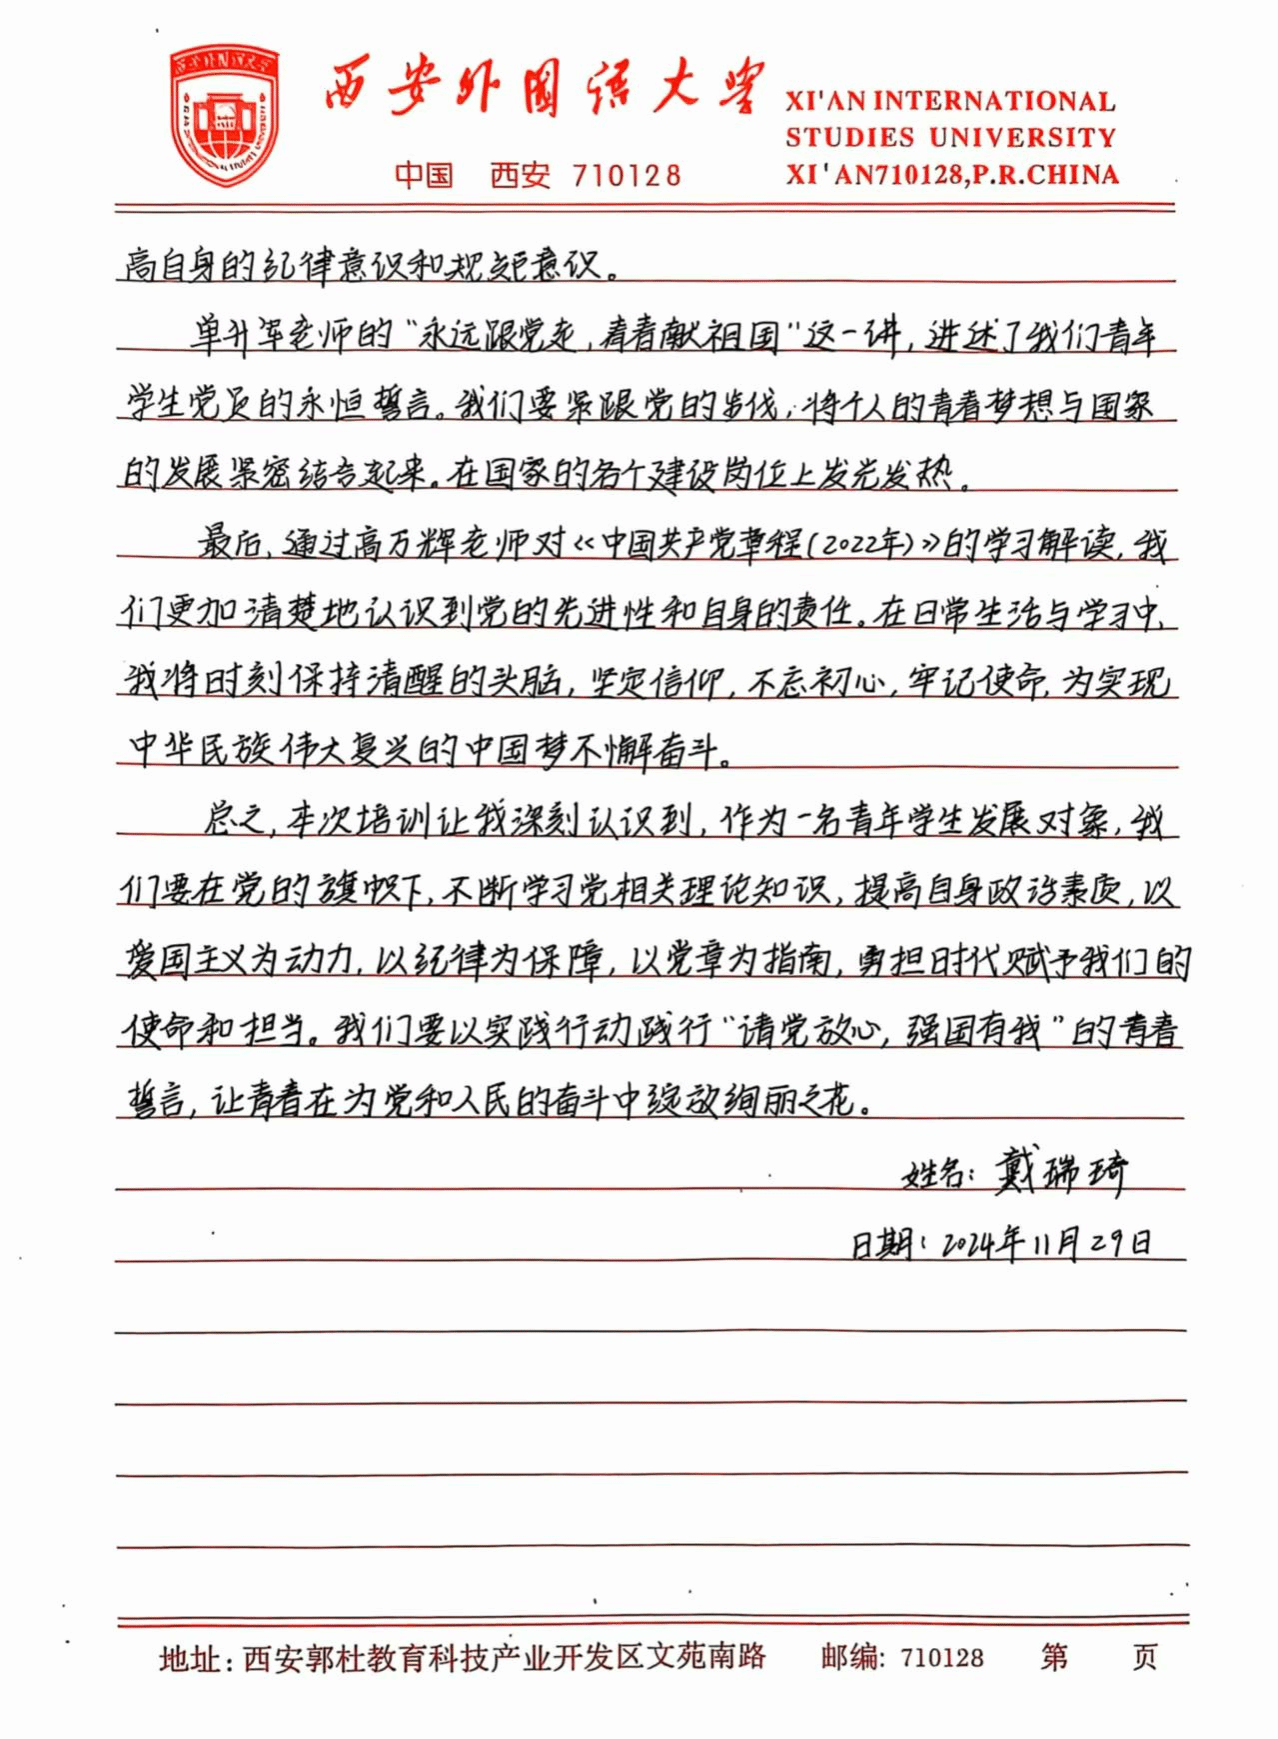 西安外国语大学
XI'AN INTERNATIONAL
STUDIES UNIVERSITY
中国 西安 710128
XI'AN710128,P.R.CHINA
高自身的纪律意识和规矩意识。
单升军老师的“永远跟党走,青春献祖国”这一讲,讲述了我们青年
学生党员的永恒誓言。我们要紧跟党的步伐,将个人的青春梦想与国家
的发展紧密结合起来。在国家的各个建设岗位上发光发热。
最后,通过高万辉老师对《中国共产党章程(2022年)》的学习解读,我
们更加清楚地认识到党的先进性和自身的责任。在日常生活与学习中,
我将时刻保持清醒的头脑,坚定信仰,不忘初心,牢记使命,为实现
中华民族伟大复兴的中国梦不懈奋斗。
总之,本次培训让我深刻认识到,作为一名青年学生发展对象,我
们要在党的旗帜下,不断学习党相关理论知识,提高自身政治素质,以
爱国主义为动力,以纪律为保障,以党章为指南,勇担时代赋予我们的
使命和担当。我们要以实践行动践行“请党放心,强国有我”的青春
誓言,让青春在为党和人民的奋斗中绽放绚丽之花。
姓名:戴瑞琦
日期:2024年11月29日
地址:西安郭杜教育科技产业开发区文苑南路 邮编: 710128 第 页